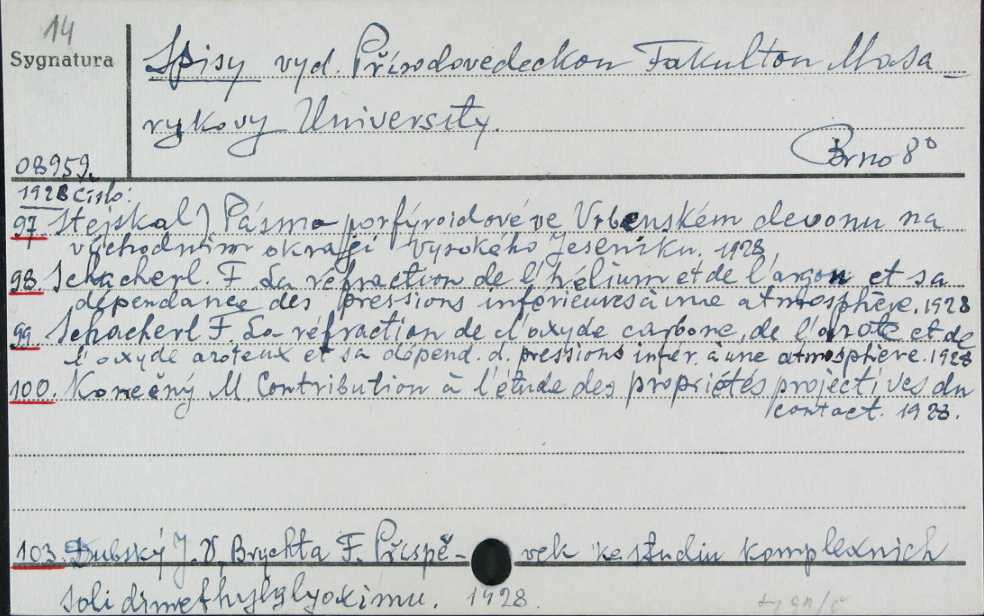 14
Sygnatura
Spisy vyd. Přírodovědeckou Fakultou Masa-
rykovy University.
Brno 8°
08959.
1928 číslo:
97 Stejskal J Pásmo porfyroidové ve Vrbenském devonu na
východním okraji Vysokého Jeseníku. 1928
98. Schacherl. F La réfraction de l'hélium et de l'argon et sa
dépendance des pressions inférieures à une atmosphère. 1928
99 Schacherl F. La réfraction de l'oxyde carbone, de l'azote et de
l'oxyde azoteux et sa dépend. d. pressions infér. à une atmosphère. 1928
100. Konečný M Contribution à l'étude des propriétés projectives du
contact. 1928.
103. Dubský J. V, Brychta F. Příspě- vek ke studiu komplexních
soli dimethylglyoximu. 1928.